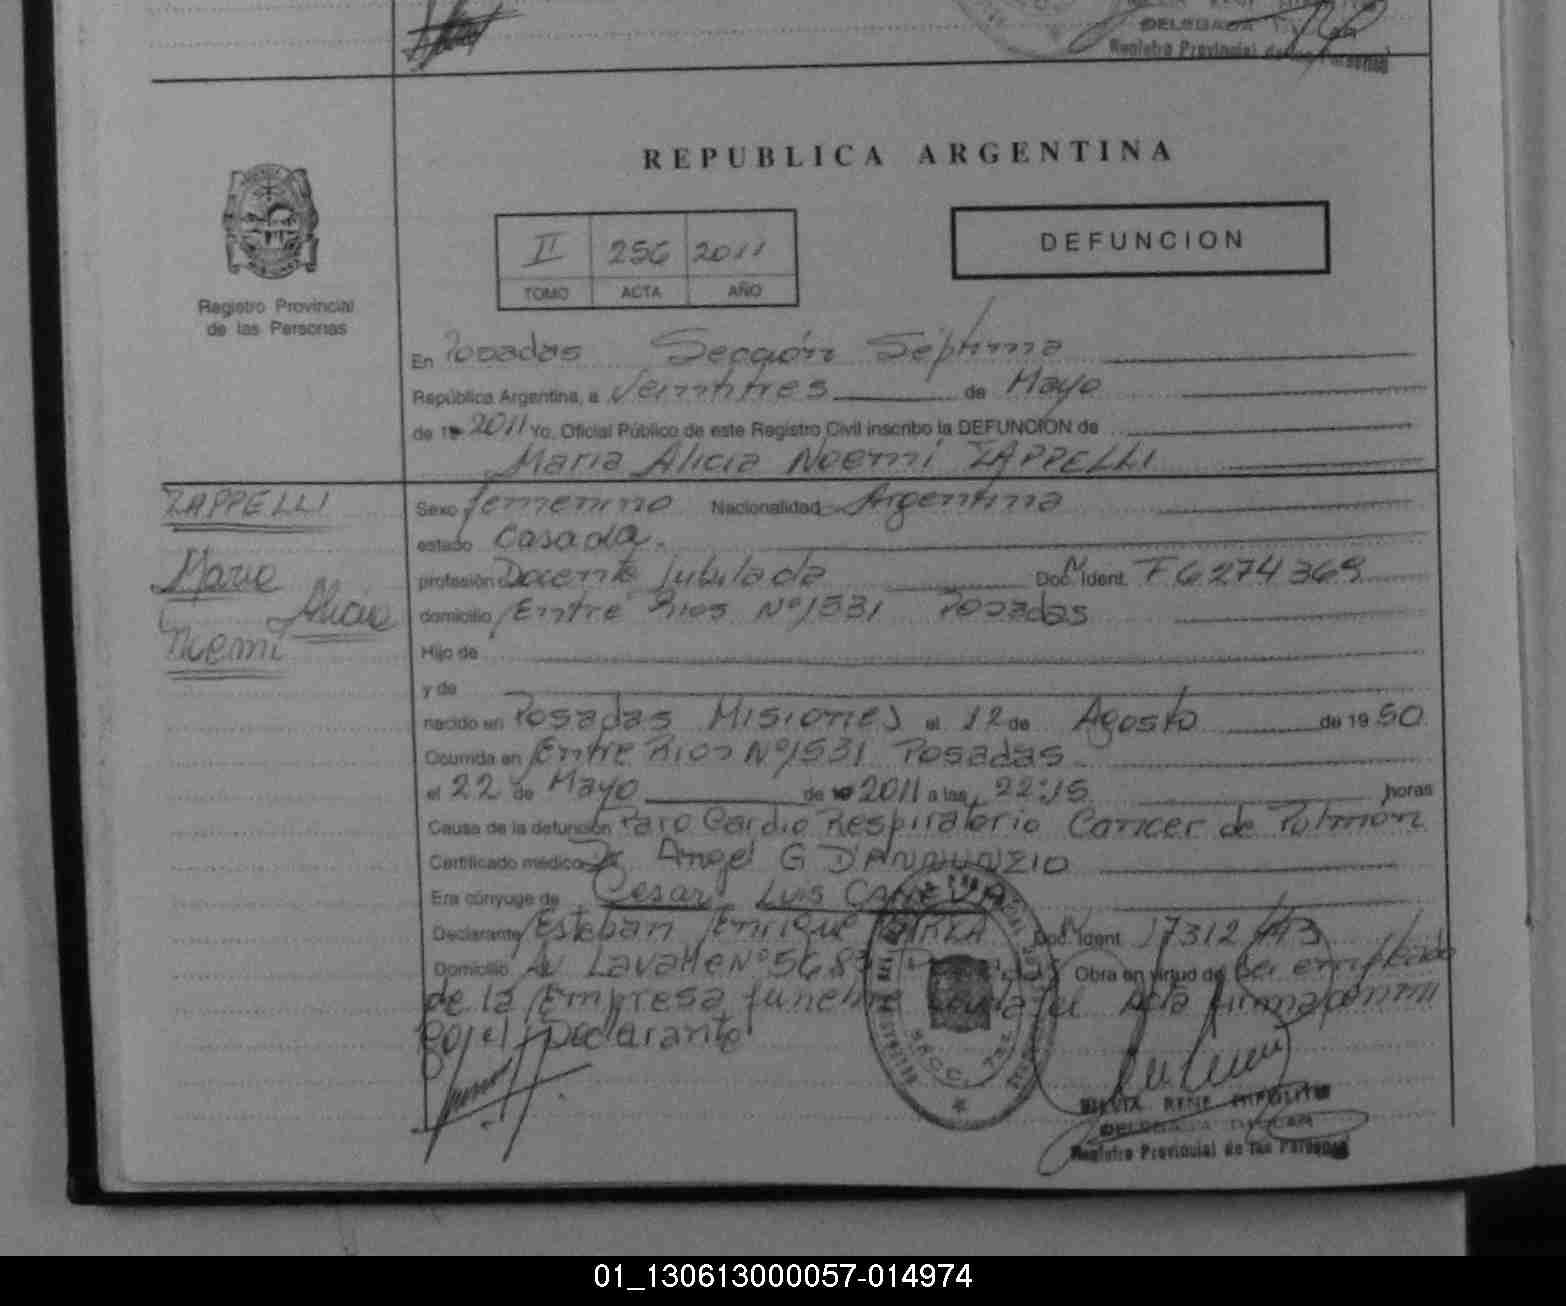 DELEGADA
Registro Provincial de las Personas
REPUBLICA ARGENTINA
II 256 2011
TOMO ACTA AÑO
DEFUNCION
Registro Provincial
de las Personas
En Posadas Sección Séptima
República Argentina, a Veintitres de Mayo
de 19 2011 Yo, Oficial Público de este Registro Civil inscribo la DEFUNCION de
Maria Alicia Noemí ZAPPELLI
ZAPPELLI
Maria
Alicia
Noemi
Sexo femenino Nacionalidad Argentina
estado Casada.
profesión Docente Jubilada Doc. Ident. F 6274369
domicilio Entre Rios Nº 1531 Posadas
Hijo de
y de
nacido en Posadas Misiones el 12 de Agosto de 19 50
Ocurrida en Entre Rios Nº 1531 Posadas
el 22 de Mayo de 19 2011 a las 22:15 horas
Causa de la defunción Paro Cardio Respiratorio Cancer de Pulmón
Certificado médico Dr Angel G D'ANNUNZIO
Era cónyuge de Cesar Luis
Declarante Esteban Enrique Doc. Ident. 17312
Domicilio Av Lavalle Nº 5683 Obra en virtud de Ser empleado
de la Empresa funebre Acta firma conmi
go el Declarante
SECC. 7ma
SILVIA RENE HIPOLITO
DELEGADA TITULAR
Registro Provincial de las Personas
01_130613000057-014974